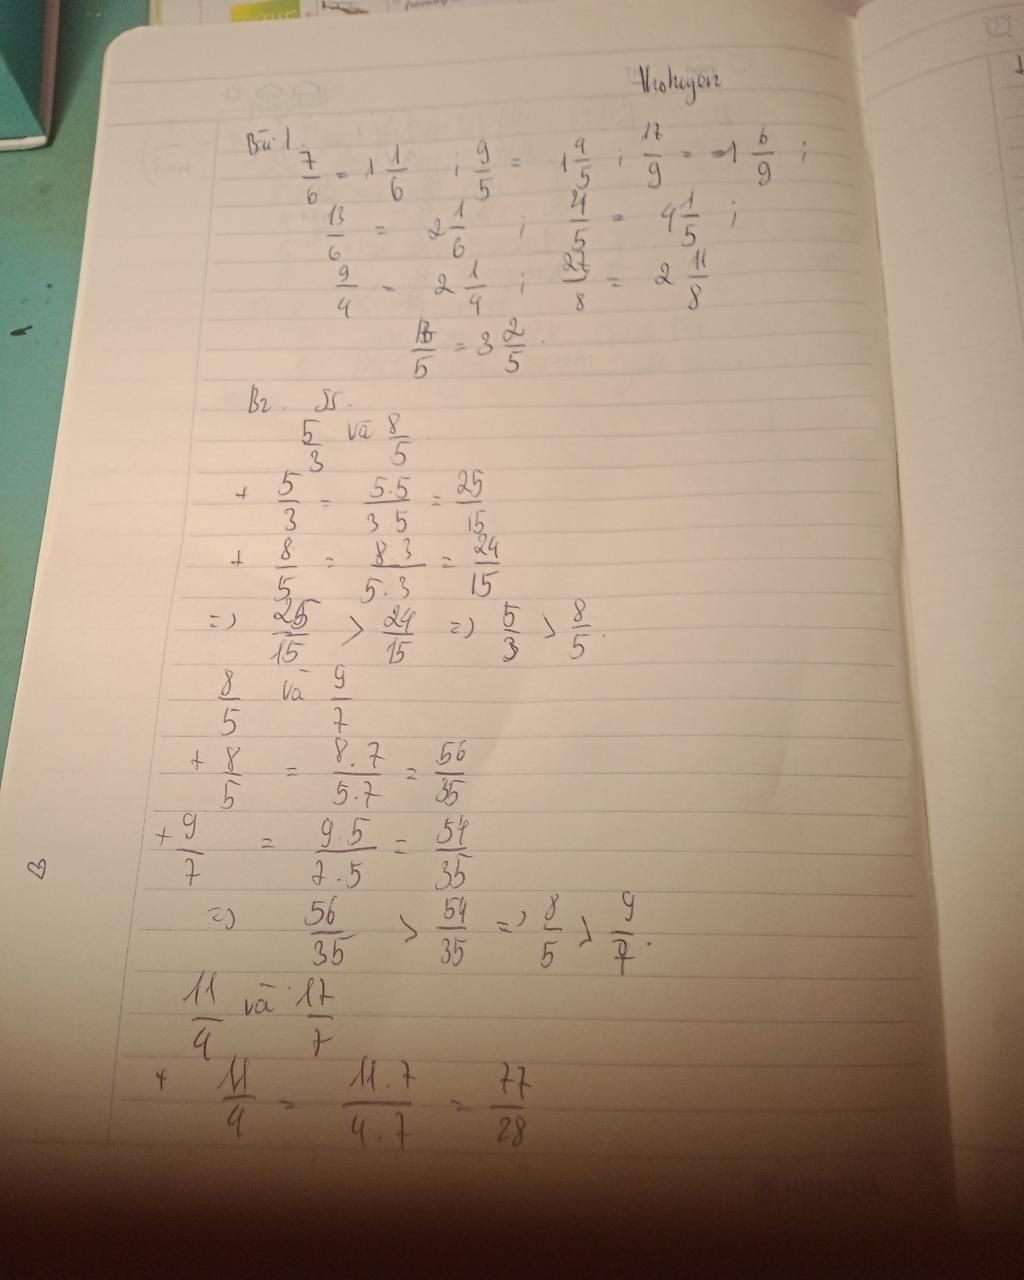 Bài 1.
7/6 = 1 1/6 ; 9/5 = 1 4/5 ; 17/9 = 1 6/9 ;
13/6 = 2 1/6 ; 21/5 = 4 1/5 ;
9/4 = 2 1/4 ; 27/8 = 2 11/8
/5 = 3 2/5 .
B2. SS.
5/3 và 8/5
+ 5/3 = 5.5/3.5 = 25/15
+ 8/5 = 8.3/5.3 = 24/15
=> 25/15 > 24/15 => 5/3 > 8/5.
8/5 và 9/7
+ 8/5 = 8.7/5.7 = 56/35
+ 9/7 = 9.5/7.5 = 54/35
=> 56/35 > 54/35 => 8/5 > 9/7.
11/4 và 17/7
+ 11/4 = 11.7/4.7 = 77/28